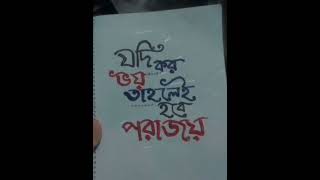 যদি কর
ভয়
তাহলেই
হবে
পরাজয়